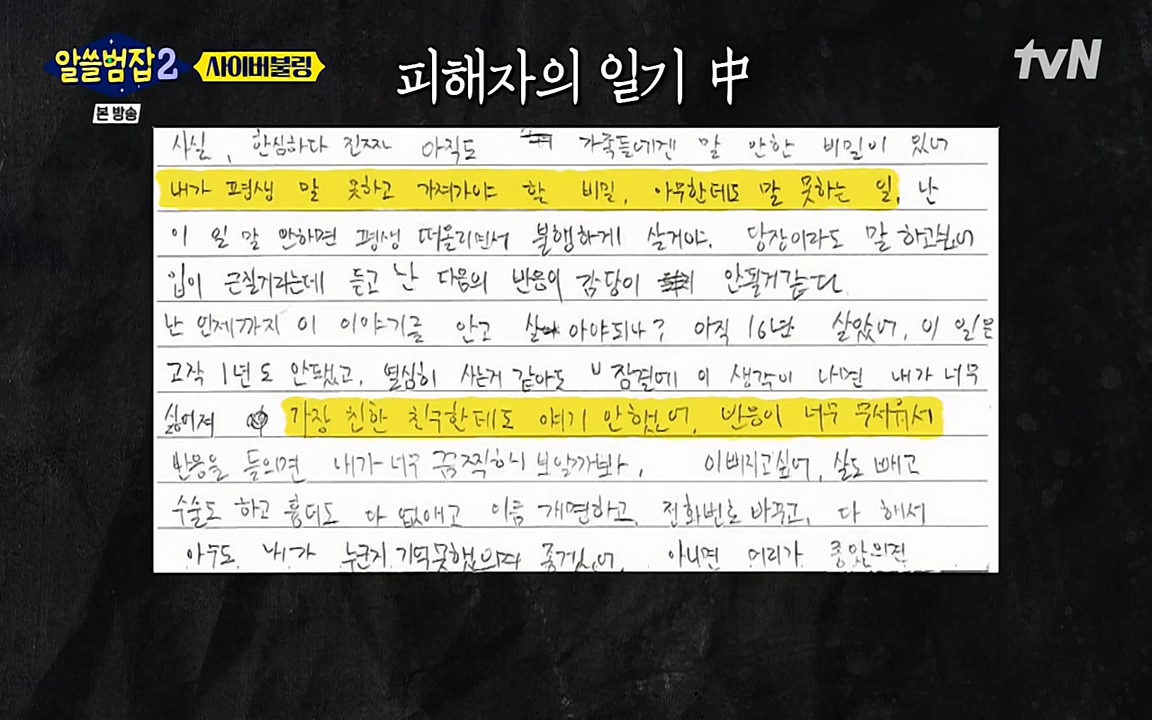 알쓸범잡2
사이버불링
본 방송
피해자의 일기 中
tvN
사실, 한심하다 진짜 아직도 가족들에겐 말 안한 비밀이 있어
내가 평생 말 못하고 가져가야 할 비밀, 아무한데도 말 못하는 일, 난
이 일 말 안하면 평생 떠올리면서 불행하게 살거야. 당장이라도 말 하고싶어
입이 근질거리는데 듣고 난 다음의 반응이 감당이 안될거같다.
난 언제까지 이 이야기를 안고 살아야되나? 아직 16년 살았어, 이 일은
고작 1년도 안됐고, 열심히 사는거 같아도 잠결에 이 생각이 나면 내가 너무
싫어져 가장 친한 친구한테도 얘기 안했어, 반응이 너무 무서워서
반응을 들으면 내가 너무 끔찍하니 보일까봐, 이뻐지고싶어, 살도 빼고
수술도 하고 흉터도 다 없애고 이름 개명하고, 전화번호 바꾸고, 다 해서
아무도 내가 누군지 기억못했으면 좋겠어, 아니면 머리가